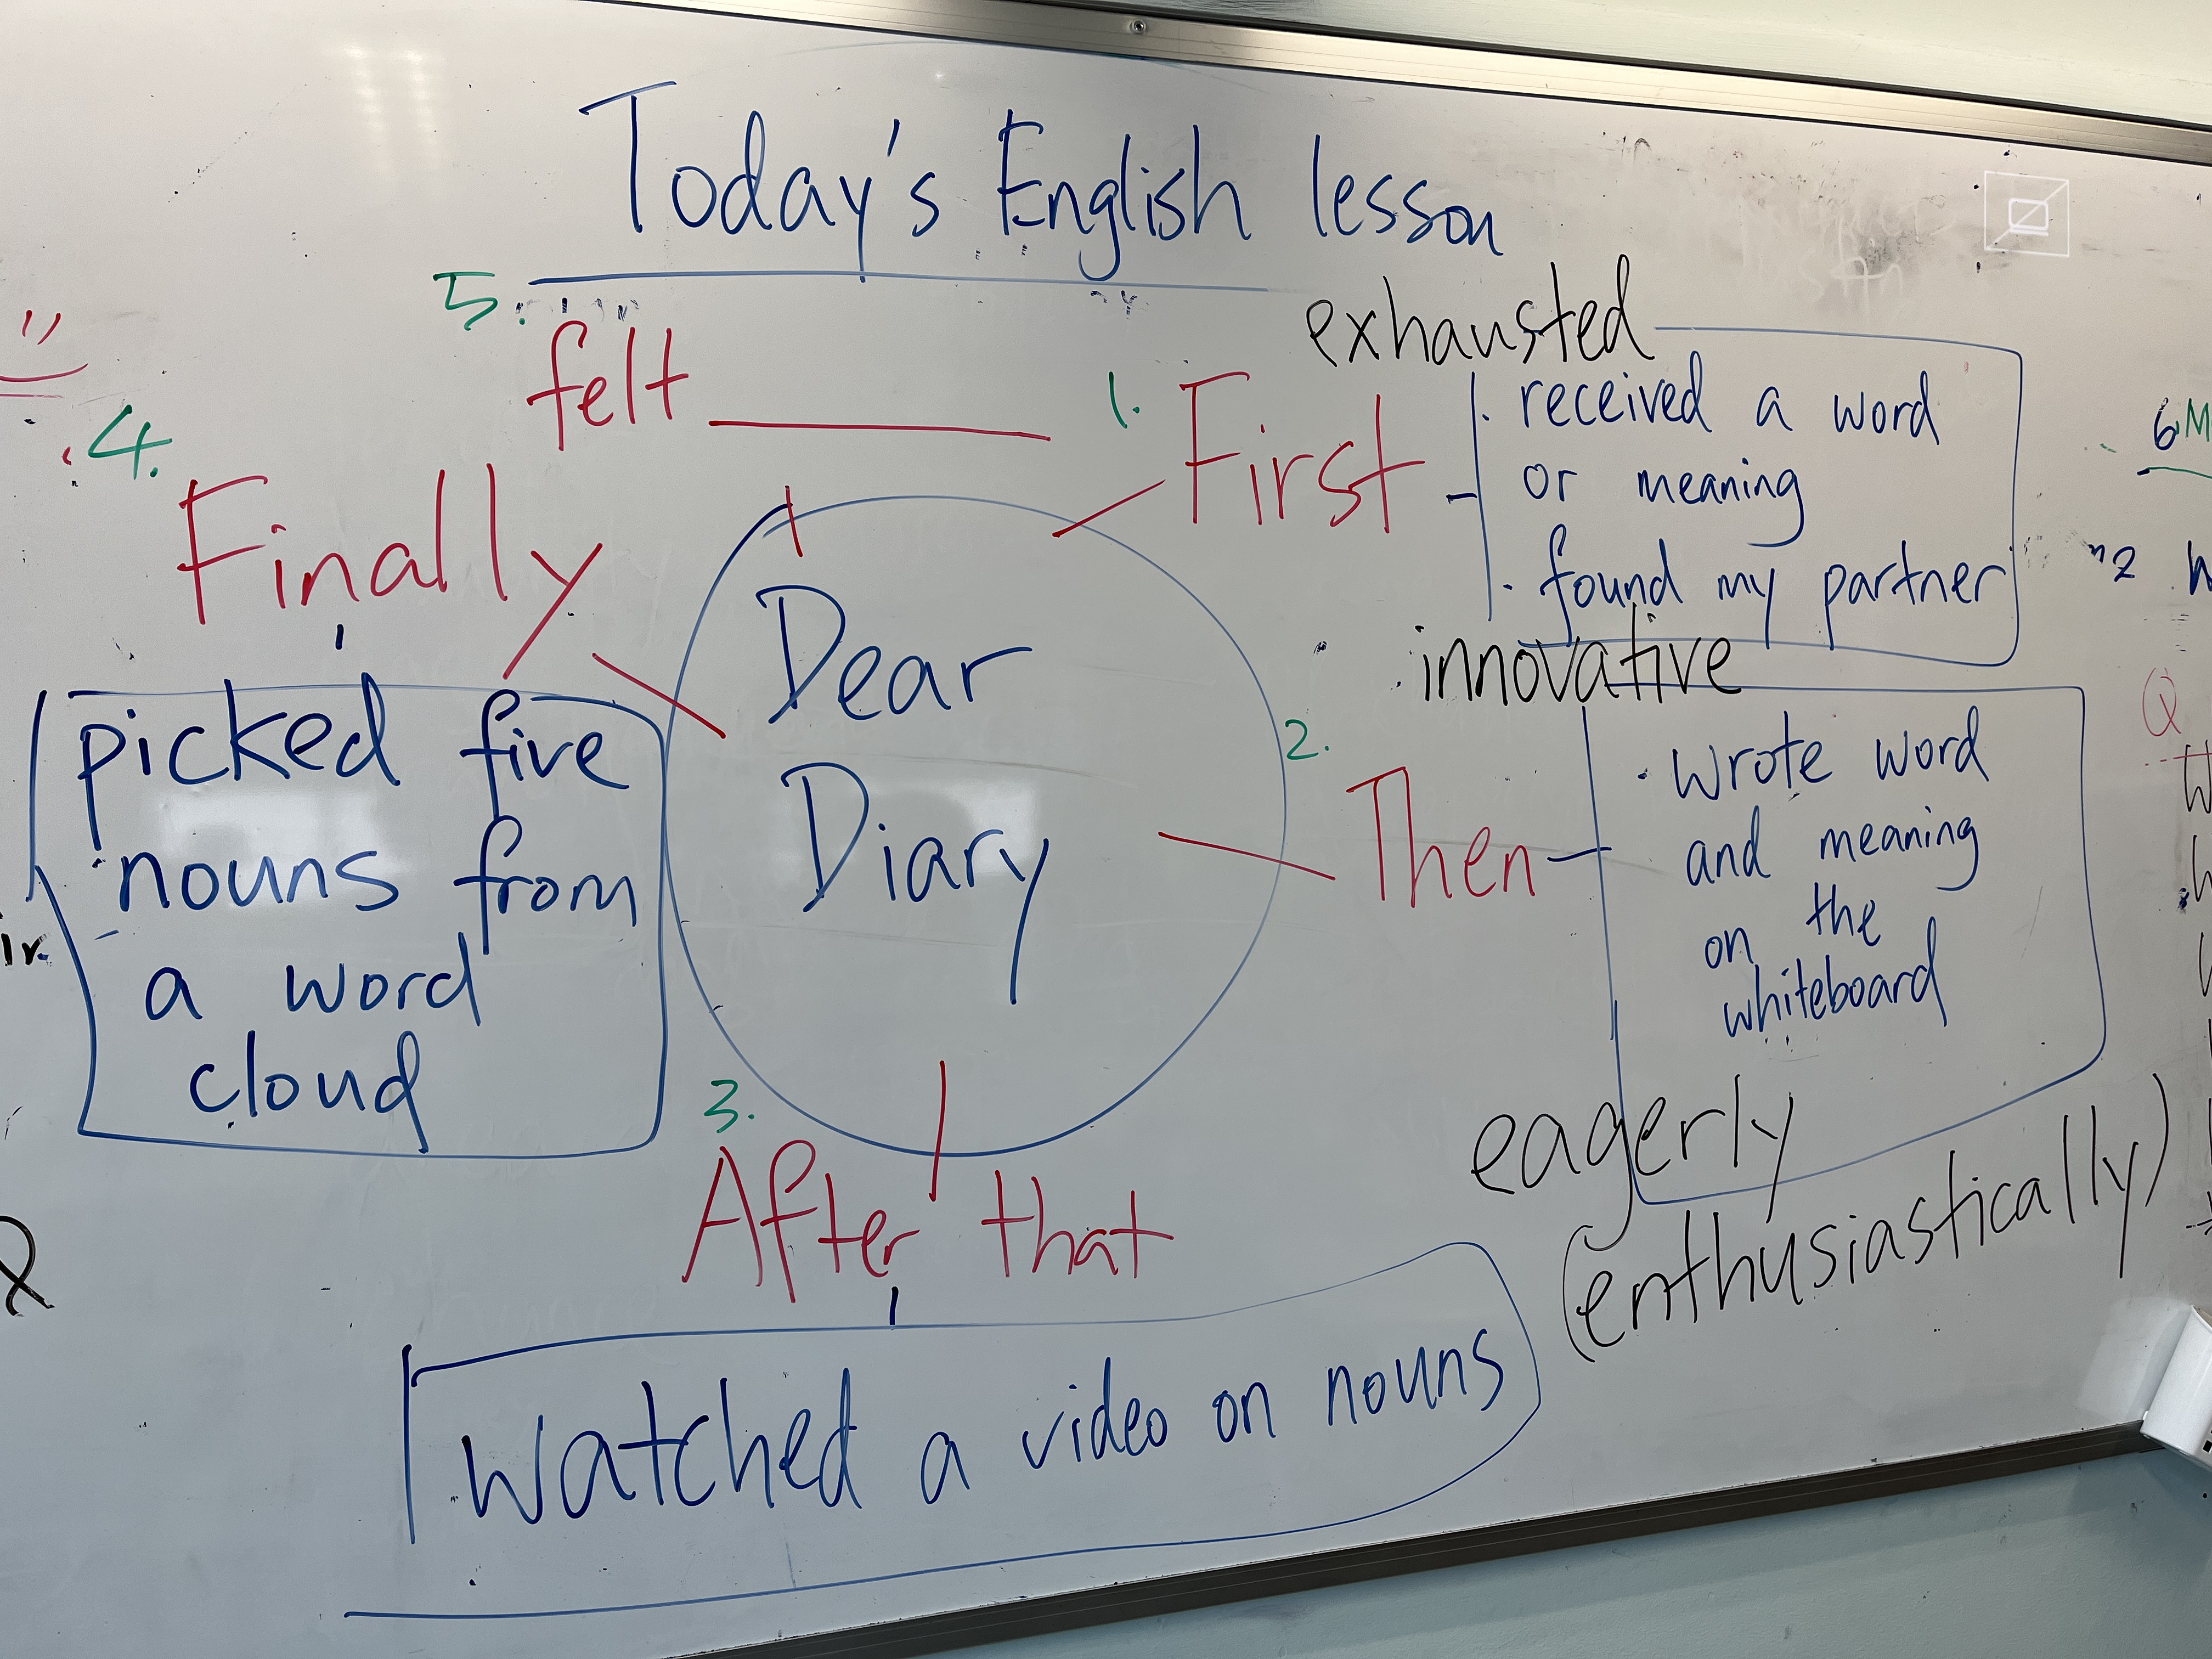 Today's English lesson
5.
felt
exhausted
1.
First
· received a word
or meaning
· found my partner
innovative
2.
Then
· wrote word
and meaning
on the
whiteboard
eagerly
(enthusiastically)
3.
After that
watched a video on nouns
4.
Finally
picked five
nouns from
a word
cloud
Dear
Diary
6.
Q